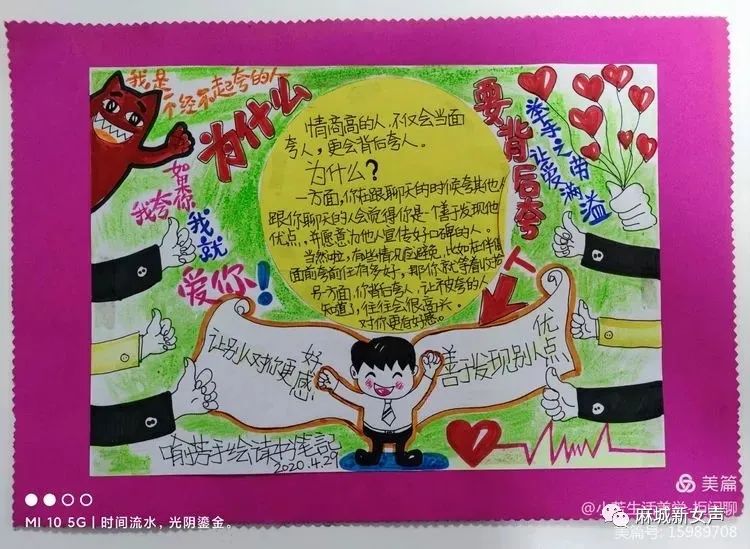 我是
一个经不起夸的人
为什么
要背后夸
人
如果你
我夸
我就
爱你!
举手之劳
让爱满溢
情商高的人,不仅会当面
夸人,更会背后夸人。
为什么?
一方面,你在跟聊天的时候夸其他人
跟你聊天的人会觉得你是一个善于发现他
优点,并愿意为他人宣传好口碑的人。
当然啦,有些情况应避免,比如在伴侣
面前夸前任有多好,那你就等着
另一方面,你背后夸人,让被夸的人
知道了,往往会很高兴。
对你更有好感。
让别人对你更好感
善于发现别人优点
喻芳手绘读书笔記
2020.4.29
MI 10 5G | 时间流水,光阴鎏金。
美篇
@小芳生活美学 拒闲聊
麻城新女声
美篇号: 15989708